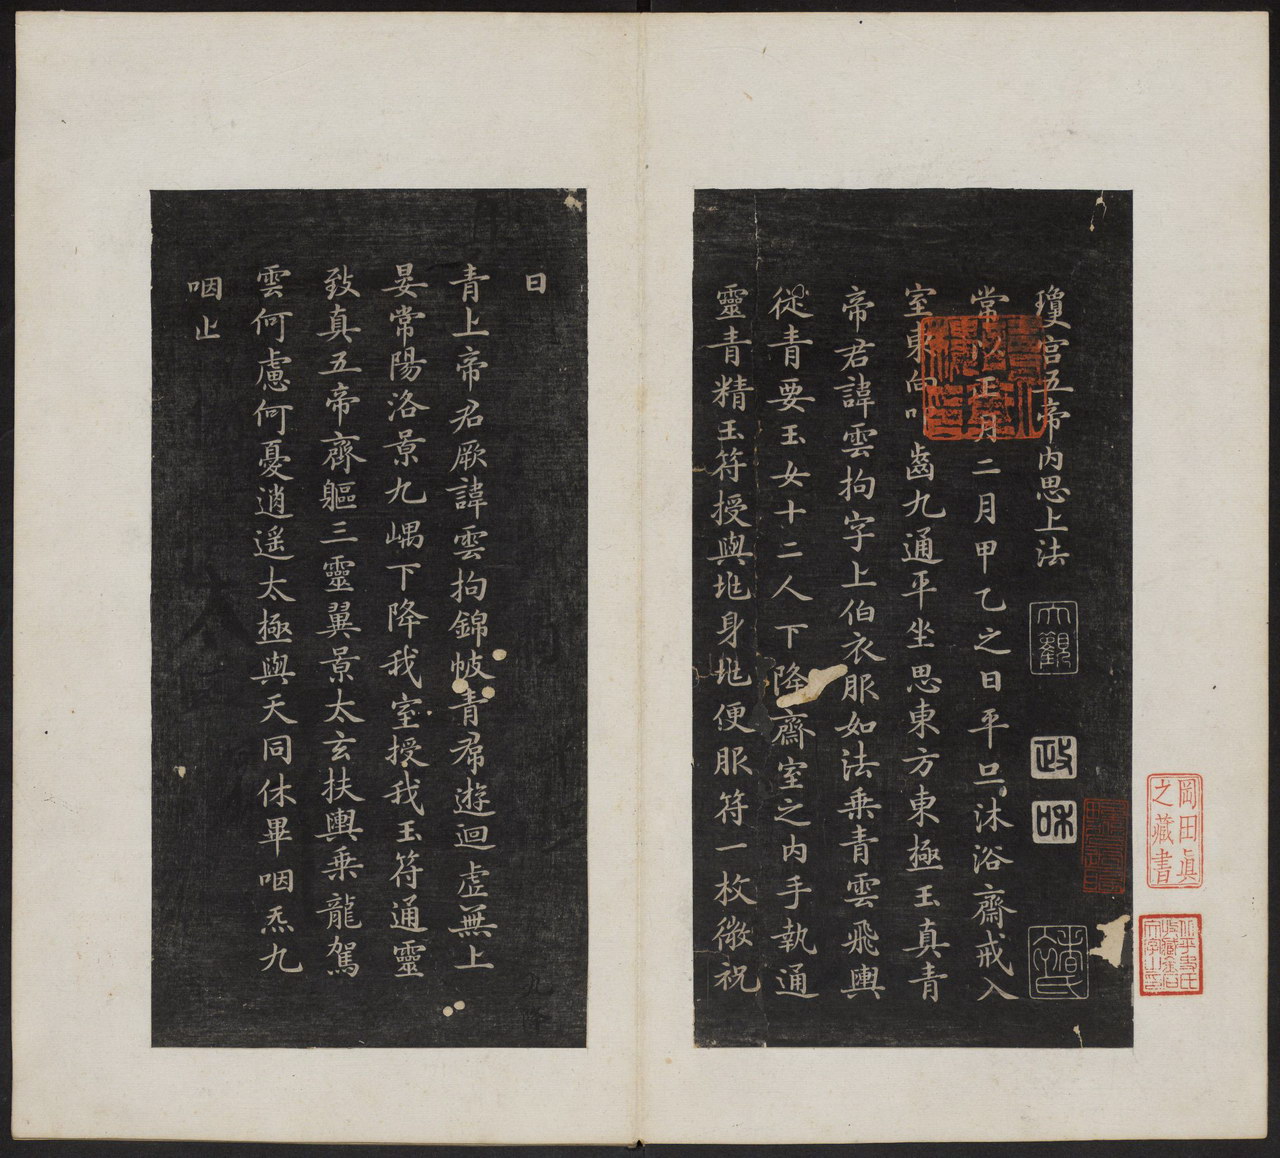 瓊宮五帝內思上法
常以正月二月甲乙之日平旦沐浴齋戒入
室東向叩齒九通平坐思東方東極玉真青
帝君諱雲拘字上伯衣服如法乘青雲飛輿
從青要玉女十二人下降齋室之內手執通
靈青精玉符授與兆身兆便服符一枚微祝
曰
青上帝君厥諱雲拘錦帔青帬遊迴虛無上
晏常陽洛景九嵎下降我室授我玉符通靈
致真五帝齊軀三靈翼景太玄扶輿乘龍駕
雲何慮何憂逍遙太極與天同休畢咽炁九
咽止
大觀
政
和
岡田真
之藏書